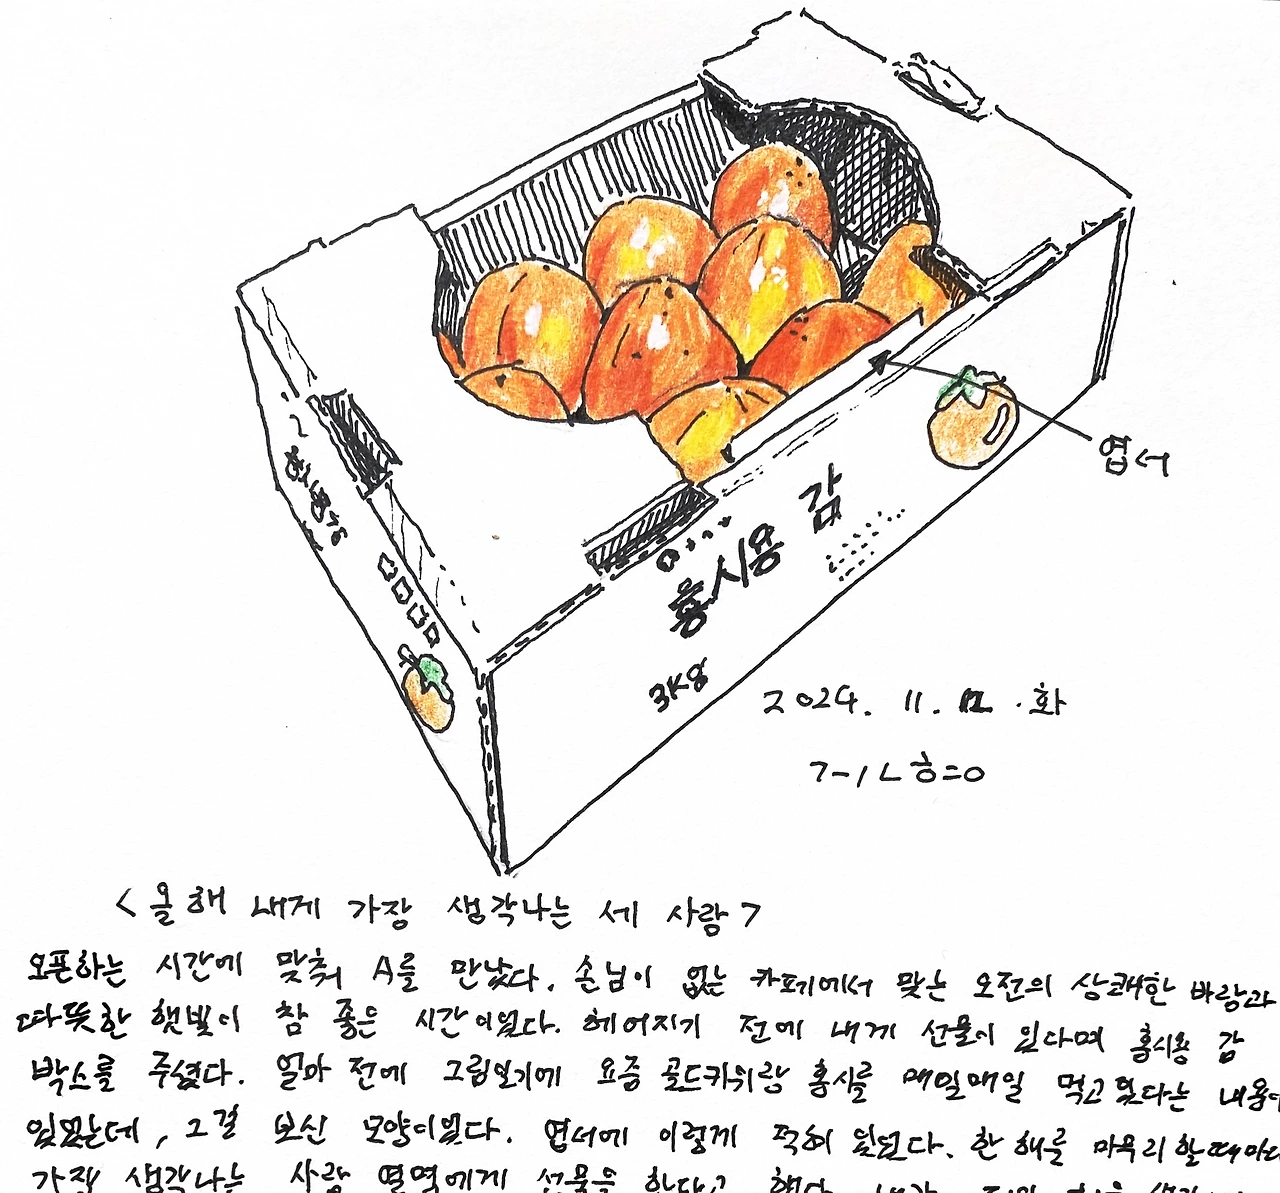 홍시용 감
3kg
엽서
2024. 11. 12 · 화
<올해 내게 가장 생각나는 세 사람>
오픈하는 시간에 맞춰 A를 만났다. 손님이 없는 카페에서 맞는 오전의 상쾌한 바람과
따뜻한 햇빛이 참 좋은 시간이었다. 헤어지기 전에 내게 선물이 있다며 홍시용 감
박스를 주셨다. 얼마 전에 그림일기에 요즘 골드키위랑 홍시를 매일매일 먹고 있다는 내용이
있었는데, 그걸 보신 모양이었다. 엽서에 이렇게 적혀 있었다. 한 해를 마무리할 때마다
가장 생각나는 사람 열명에게 선물을 한다고 했다.